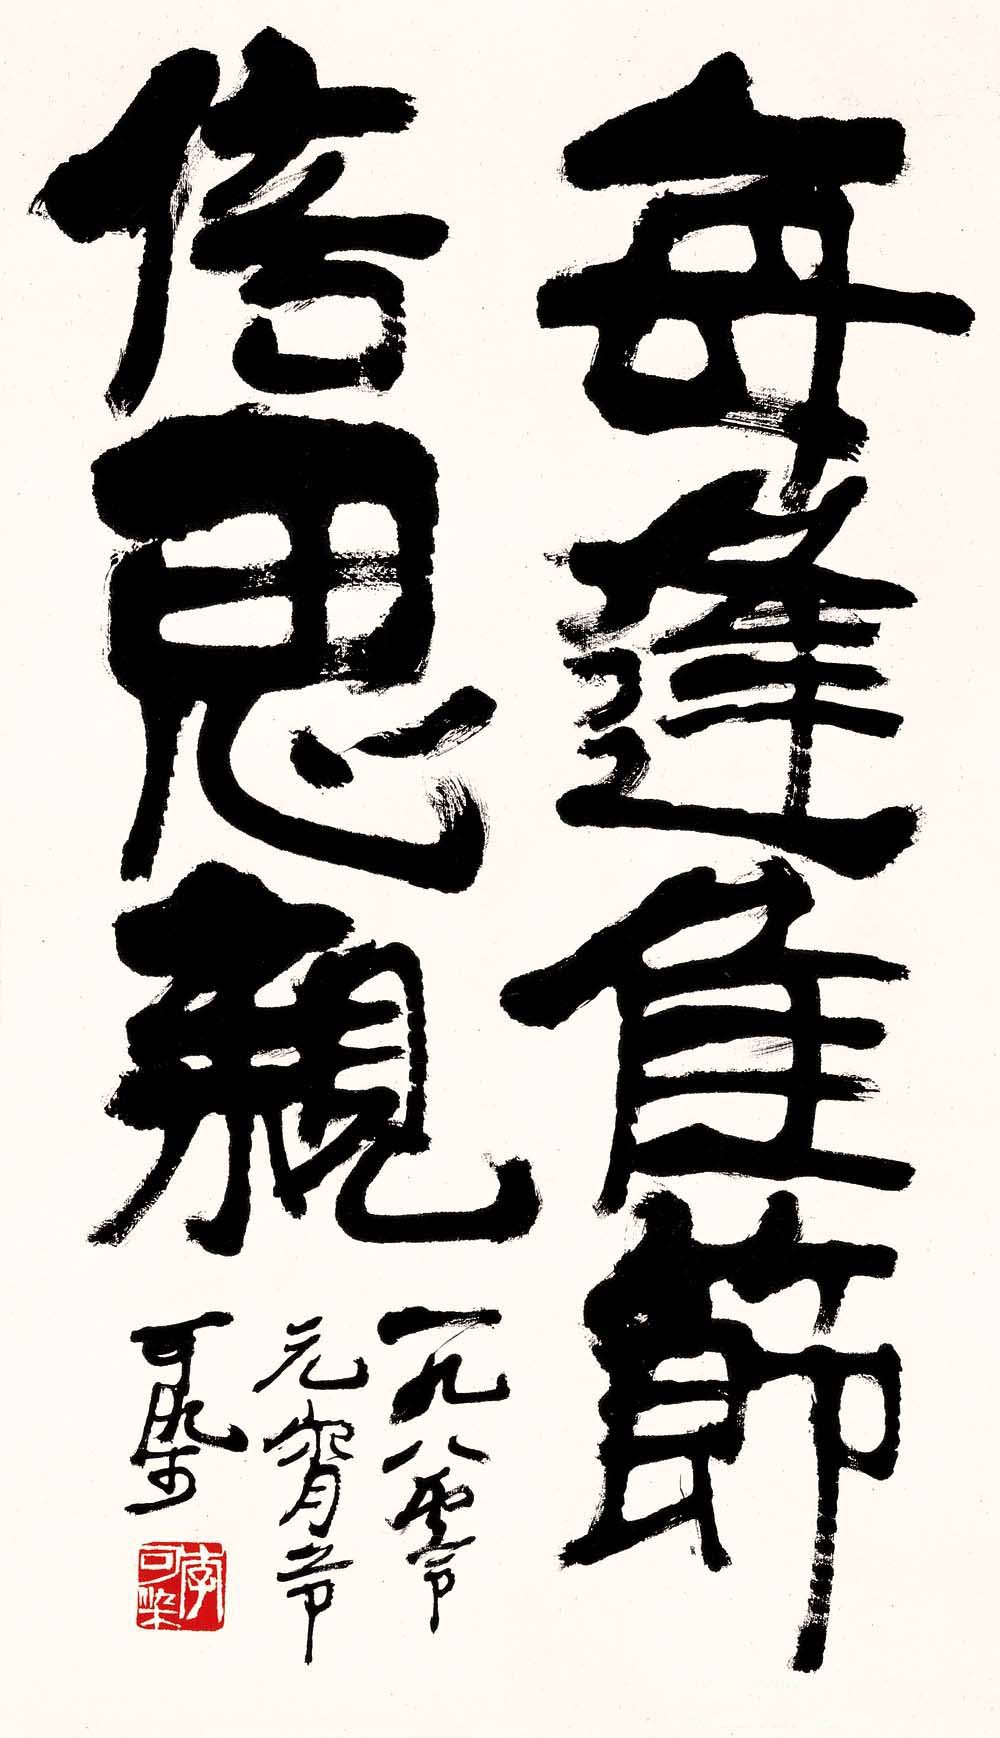 每逢佳節
倍思親
一九八零
元宵节
可染
李可染